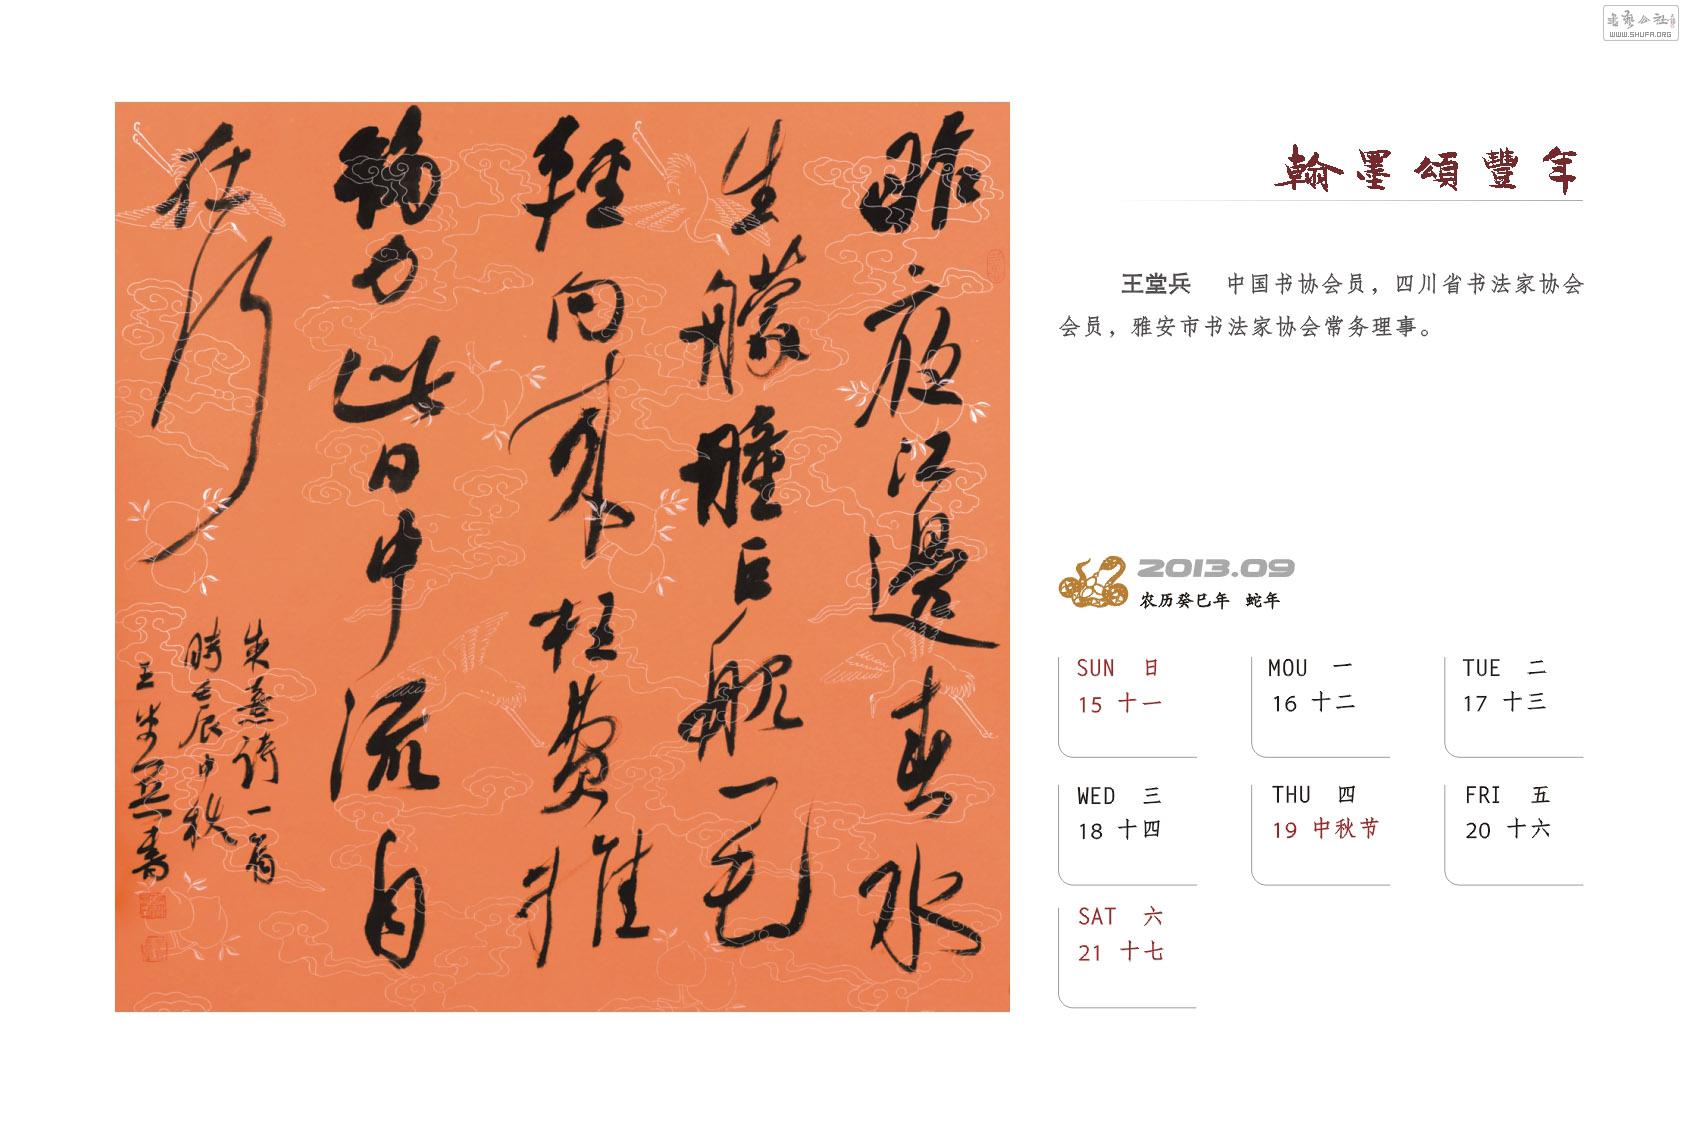 書藝公社
WWW.SHUFA.ORG
翰墨頌豐年
昨夜江邊春水
生艨艟巨艦一毛
輕向來枉費推
移力此日中流自
在行
朱熹詩一首
時壬辰中秋
王堂兵書
王堂兵 中国书协会员，四川省书法家协会
会员，雅安市书法家协会常务理事。
2013.09
农历癸巳年 蛇年
SUN 日
15 十一
MOU 一
16 十二
TUE 二
17 十三
WED 三
18 十四
THU 四
19 中秋节
FRI 五
20 十六
SAT 六
21 十七